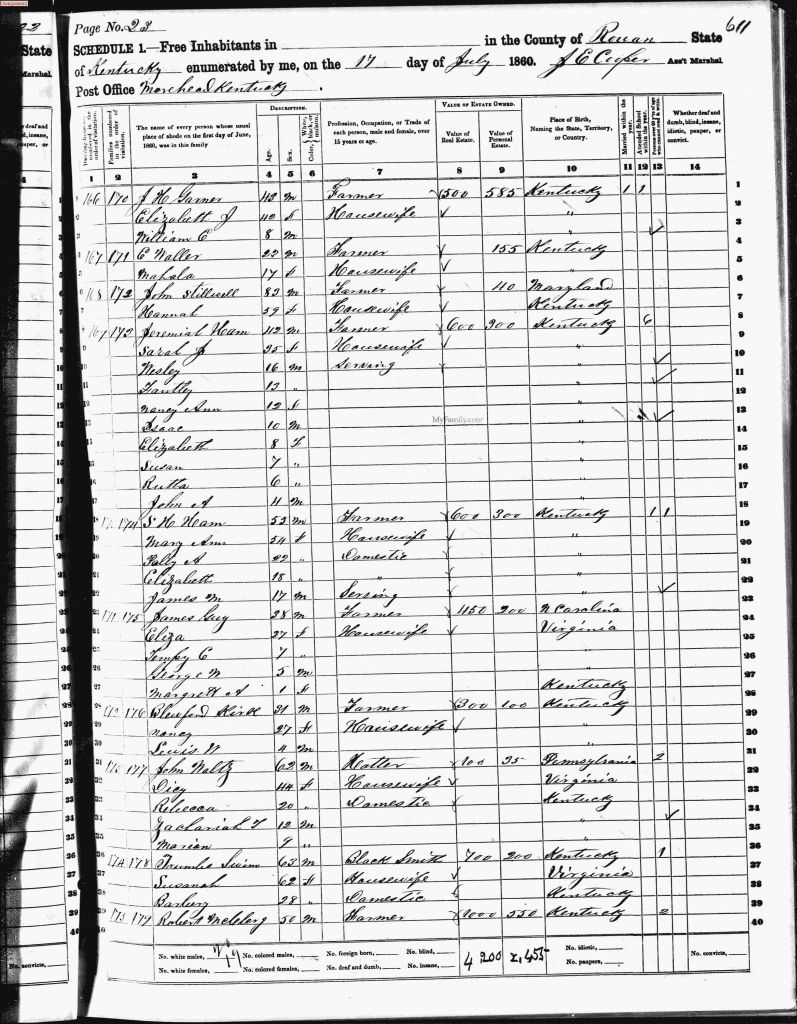 Page No. 23
611
SCHEDULE 1.—Free Inhabitants in in the County of Rowan State
of Kentucky enumerated by me, on the 17 day of July 1860. J E Cooper Ass't Marshal
Post Office Morehead Kentucky.
DESCRIPTION. VALUE OF ESTATE OWNED.
Dwelling-houses numbered in the order of visitation. Families numbered in the order of visitation. The name of every person whose usual place of abode on the first day of June, 1860, was in this family Age. Sex. Color, White, black, or mulatto. Profession, Occupation, or Trade of each person, male and female, over 15 years of age. Value of Real Estate. Value of Personal Estate. Place of Birth, Naming the State, Territory, or Country. Married within the year. Attended School within the year. Persons over 20 y'rs of age who cannot read & write. Whether deaf and dumb, blind, insane, idiotic, pauper, or convict.
1 2 3 4 5 6 7 8 9 10 11 12 13 14
166 170 J H Garner 43 m Farmer 500 585 Kentucky 1 1
Elizabeth J 42 f Housewife "
William C 8 m "
167 171 C Waller 22 m Farmer 155 Kentucky
Mahala 17 f Housewife "
168 172 John Stillwell 83 m Farmer 40 Maryland
Hannah 59 f Housewife Kentucky
173 Jeremiah Ham 42 m Farmer 600 300 Kentucky 6
Sarah J 35 f Housewife "
Wesley 16 m Serving "
13 " "
Nancy Ann 12 f "
Isaac 10 m "
Elizabeth 8 f "
Susan 7 " "
6 " "
John A 4 m "
174 S H Ham 53 m Farmer 600 300 Kentucky 1 1
Mary Ann 54 f Housewife "
Polly A 22 " Domestic "
Elizabeth 18 " " "
James M 17 m Serving "
171 175 James Guy 38 m Farmer 450 200 N Carolina
Eliza 27 f Housewife Virginia
Tempy C 7 " "
George W 5 m "
Margrett A 1 f Kentucky
172 176 Blewford Kirk 21 m Farmer 300 100 Kentucky
Nancy 27 f Housewife "
Lewis W 4 m "
173 177 John Waltz 62 m Hatter 100 35 Pennsylvania 2
Dicy 44 f Housewife Virginia
Rebecca 20 " Domestic Kentucky
Zachariah T 12 m "
Marion 9 " "
174 178 Swim 63 m Black Smith 700 200 Kentucky 1
Susanah 62 f Housewife Virginia
Barbery 28 " Domestic Kentucky
175 179 Robert 50 m Farmer 1000 550 Kentucky 2
MyFamily.com
No. white males, No. colored males, No. foreign born, No. blind, 4 200 2,455 No. idiotic, No. convicts,
No. white females, No. colored females, No. deaf and dumb, No. insane, No. paupers,